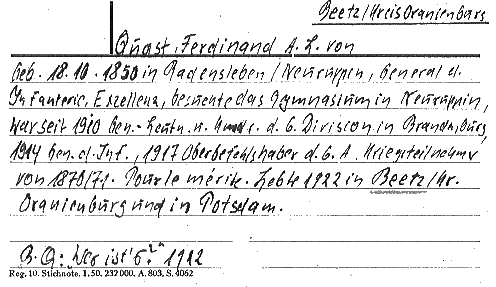 Beetz/Kreis Oranienburg
Quast, Ferdinand A. L. von
geb. 18.10.1850 in Radensleben/Neuruppin, General d.
Infanterie, Exzellenz, besuchte das Gymnasium in Neuruppin,
war seit 1910 Gen.-Leutn. u. Kmdr. d. 6. Division in Brandenburg,
1914 Gen. d. Inf., 1917 Oberbefehlshaber d. 6. A. Kriegsteilnehmer
von 1870/71. Pour le mérite. Lebte 1922 in Beetz/Kr.
Oranienburg und in Potsdam.
B. Q.: "Wer ist's?" 1912
Reg. 10. Stichnote. I. 50. 232 000. A. 803, S. 4062